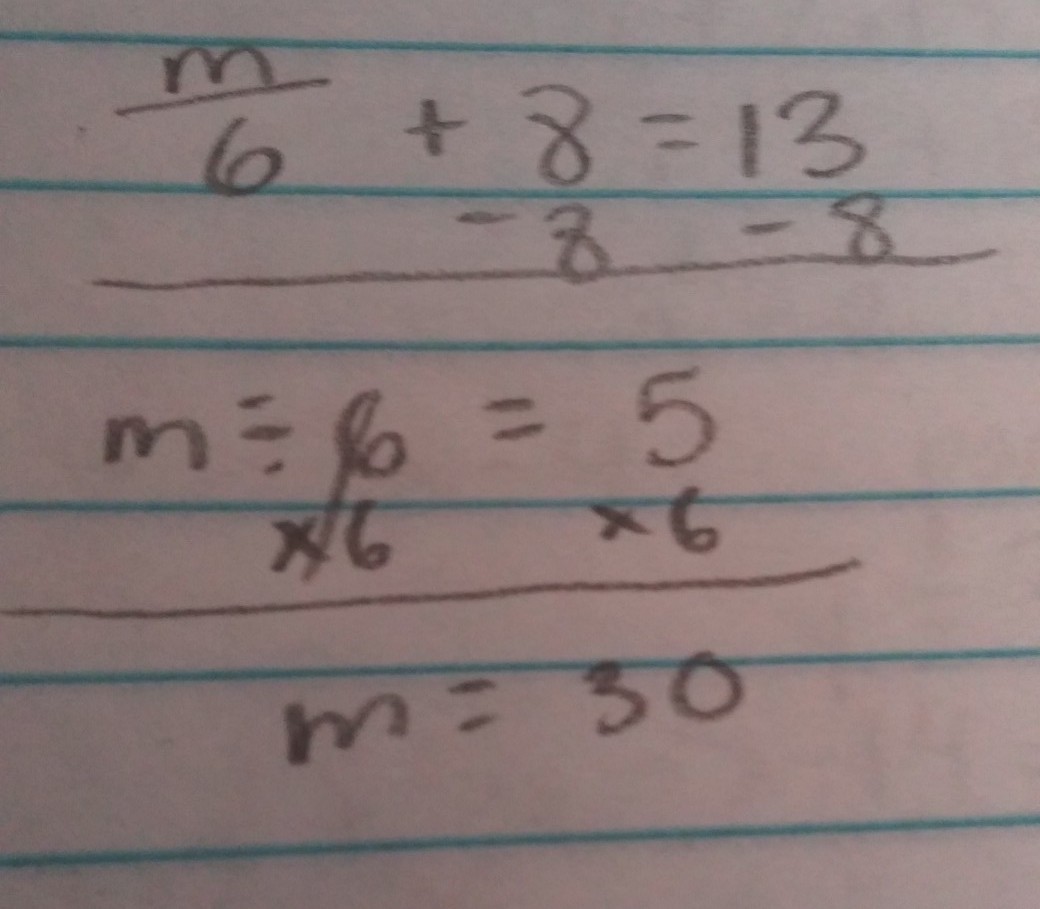 m/6 + 8 = 13
- 8 - 8
m ÷ 6 = 5
×6 ×6
m = 30